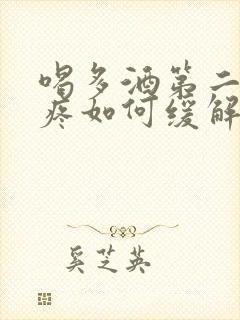 喝多酒第二
疼如何缓解
奚芝英